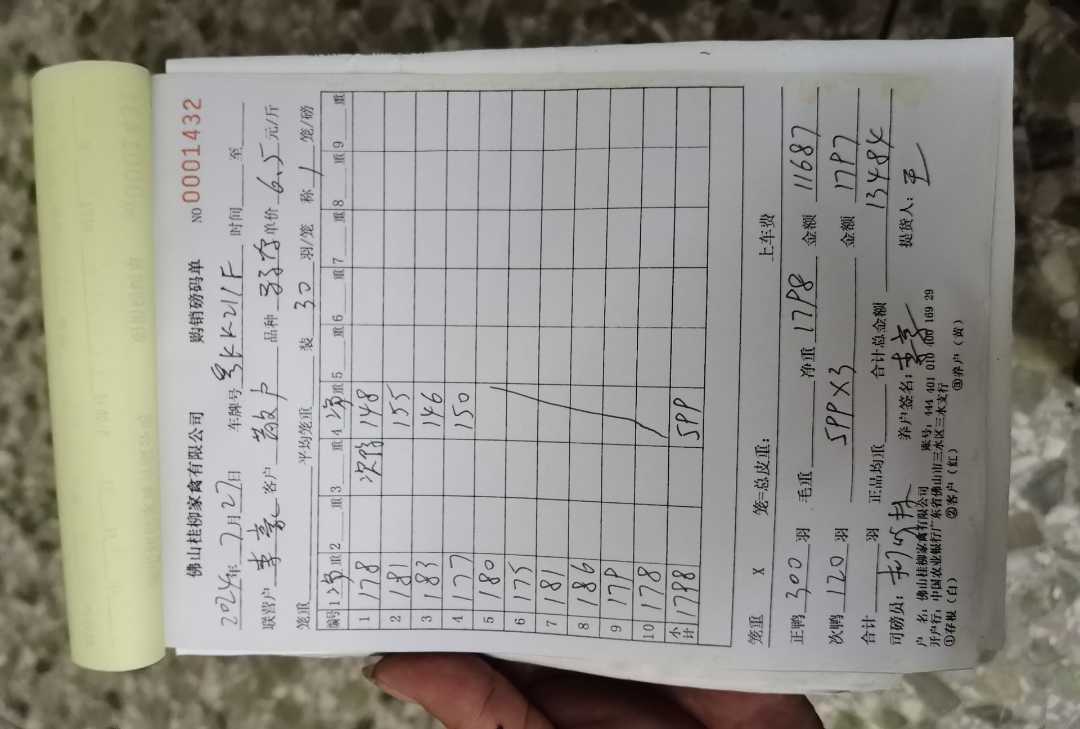 佛山桂柳家禽有限公司 购销磅码单 NO 0001432
2024年7月27日 车牌号 KK211F 时间 至
联营户 李豪 客户 散户 品种 单价 6.5 元/斤
笼重 平均笼重 装 30 羽/笼 称 1 笼/磅
编号 1 净 重 2 重 3 重 4 净 重 5 重 6 重 7 重 8 重 9 重
1 178 次鸭 148
2 181 155
3 183 146
4 177 150
5 180
6 175
7 181
8 186
9 179
10 178
小计 1798 599
笼重 X 笼=总皮重: 上车费
正鸭 300 羽 毛重 净重 1798 金额 11687
次鸭 120 羽 599X3 金额 1797
合计 羽 正品均重 合计总金额 13484
司磅员: 养户签名: 李豪 提货人:
户 名: 佛山桂柳家禽有限公司 账号: 444 401 010 400 169 29
开户行: 中国农业银行广东省佛山市三水区三水支行
①存根(白) ②客户(红) ③养户(黄)